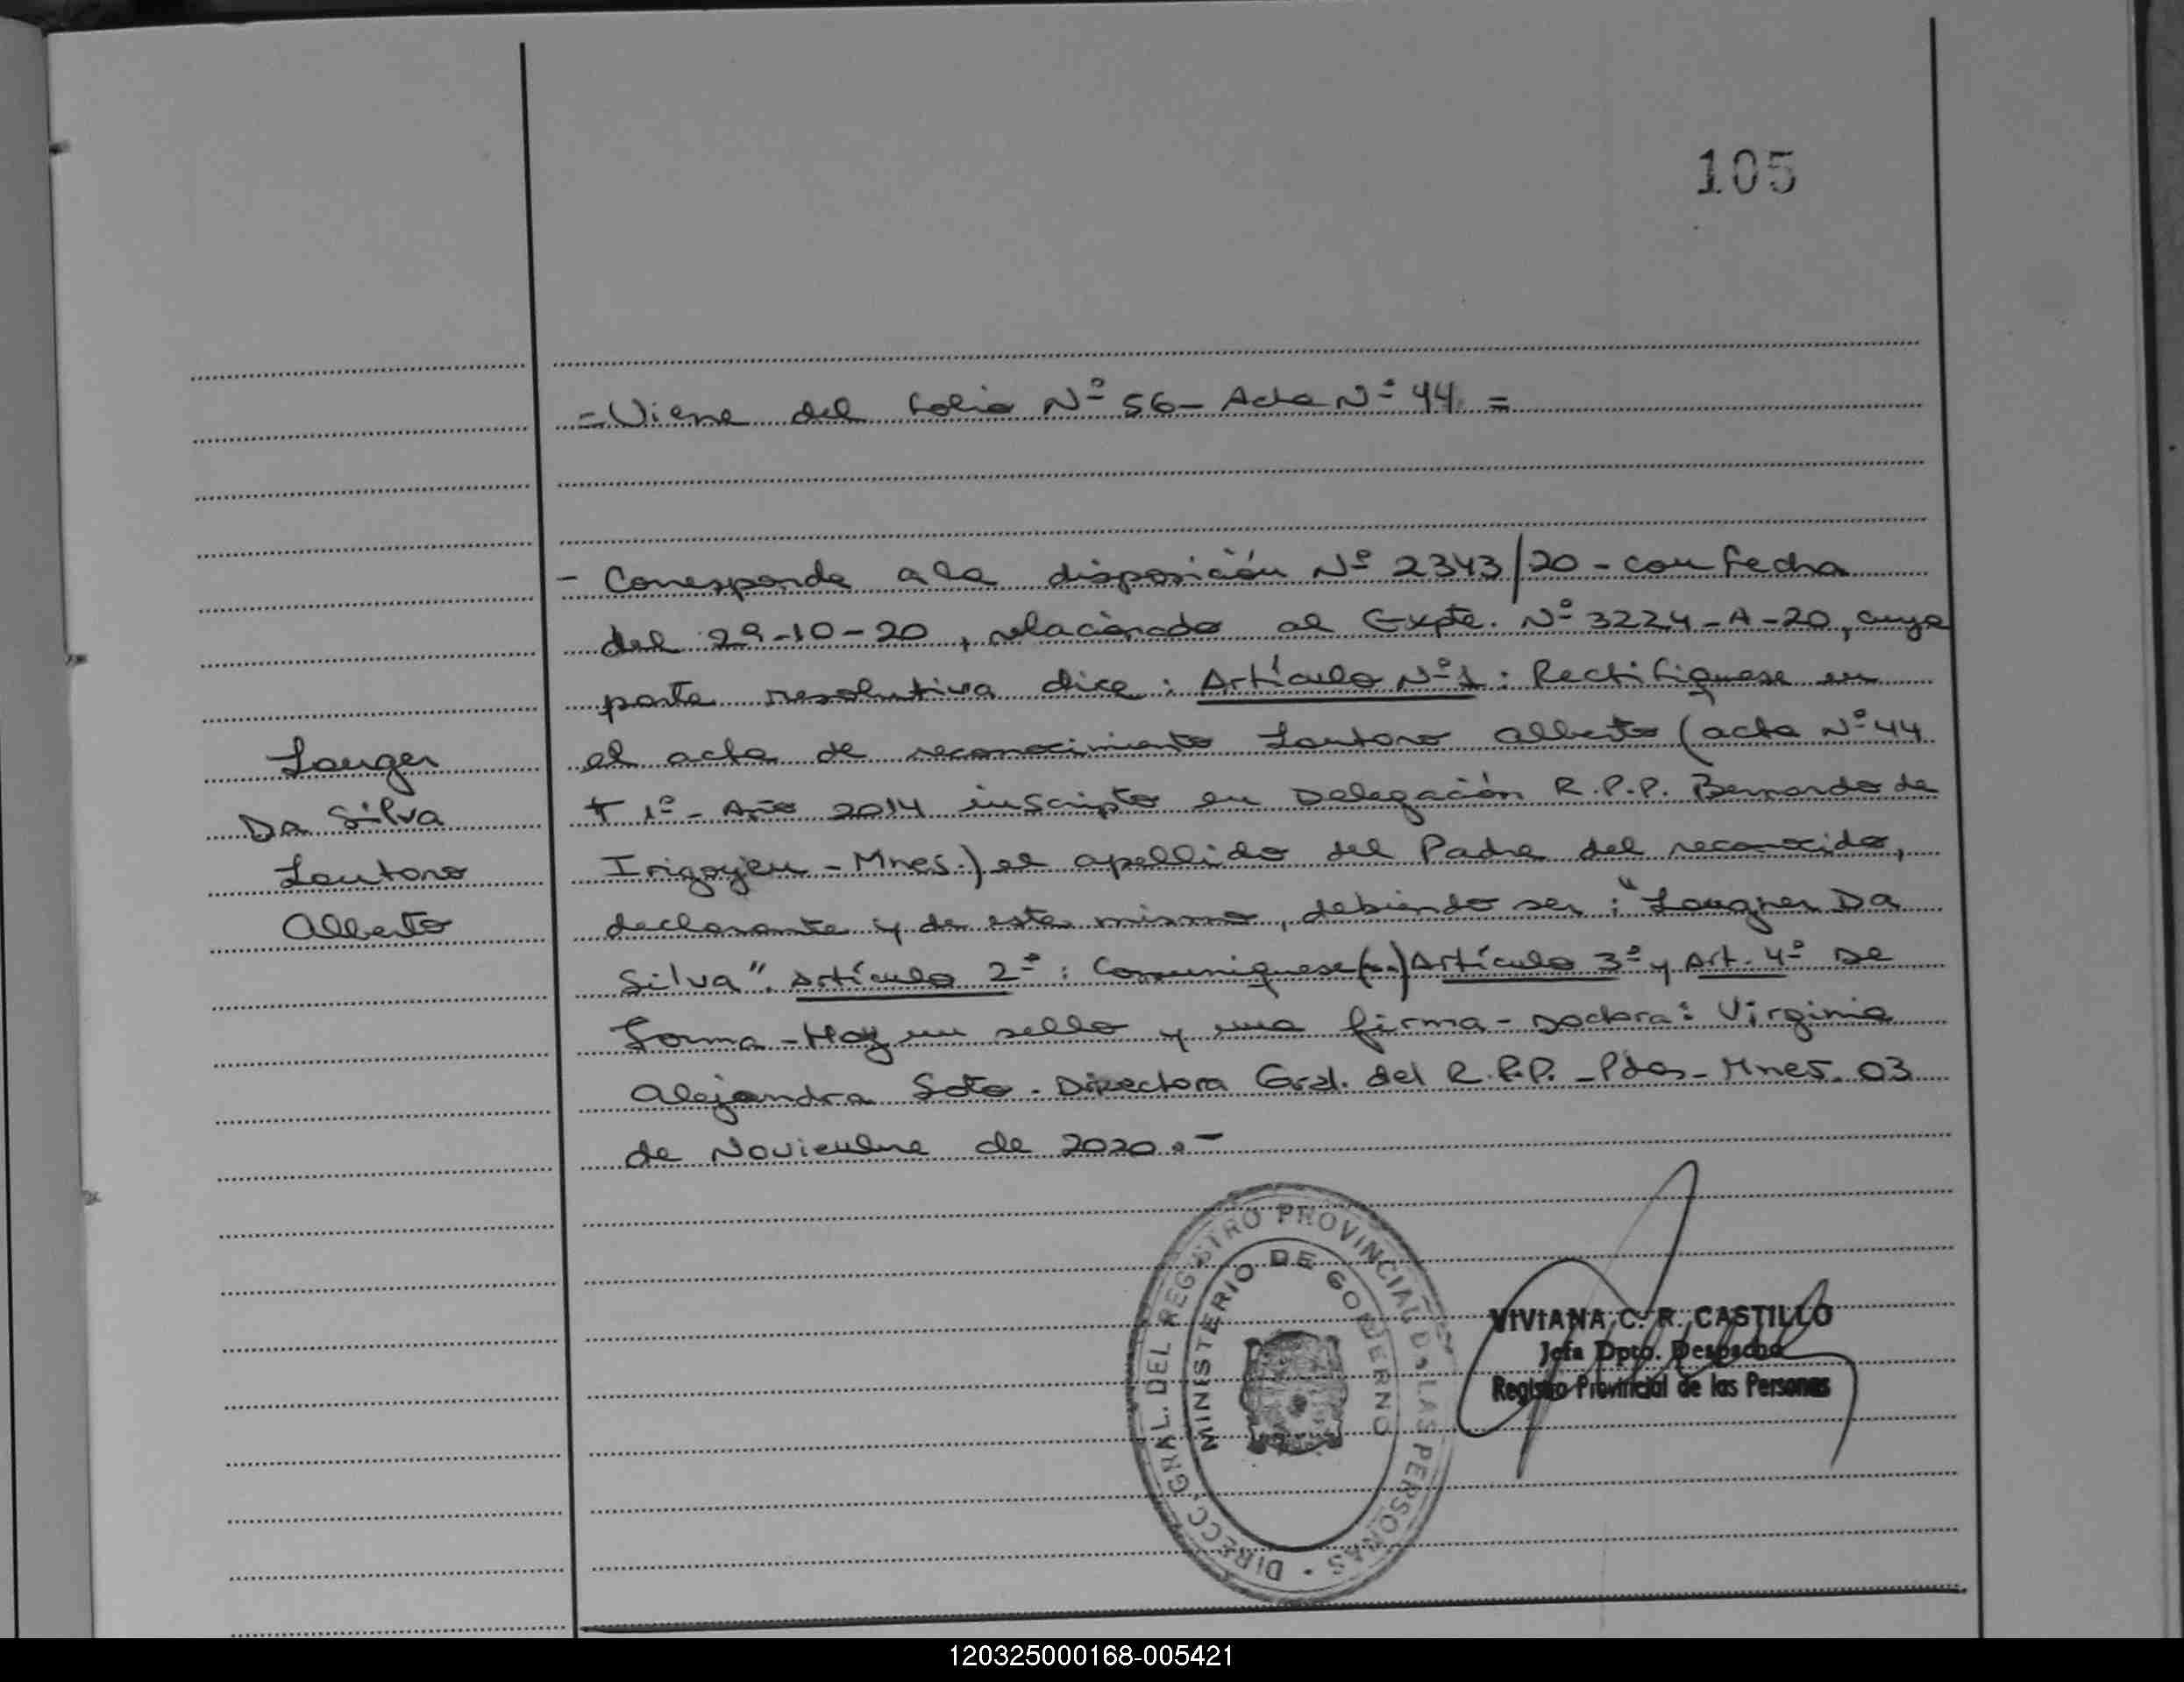 105
= Viene del folio Nº 56 - Acta Nº 44 =
- Corresponde a la disposición Nº 2343/20 - con fecha
del 29-10-20, relacionado al Expte. Nº 3224-A-20, cuya
parte resolutiva dice: Artículo Nº 1: Rectifiquese en
el acta de reconocimiento Lautaro Alberto (acta Nº 44
Langer
Tº 1º - Año 2014 inscripto en Delegación R.P.P. Bernardo de
Da Silva
Irigoyen - Mnes.) el apellido del Padre del reconocido,
Lautaro
declarante y de este mismo, debiendo ser: "Langner Da
Alberto
Silva". Artículo 2º: Comuniquese (..) Artículo 3º y Art. 4º De
Forma - Hay un sello y una firma - Doctora: Virginia
Alejandra Soto - Directora Gral. del R.P.P. - Pdas - Mnes. 03
de Noviembre de 2020.-
DIRECC. GRAL. DEL REGISTRO PROVINCIAL DE LAS PERSONAS
MINISTERIO DE GOBIERNO
VIVIANA C. R. CASTILLO
Jefa Dpto. Despacho
Registro Provincial de las Personas
120325000168-005421